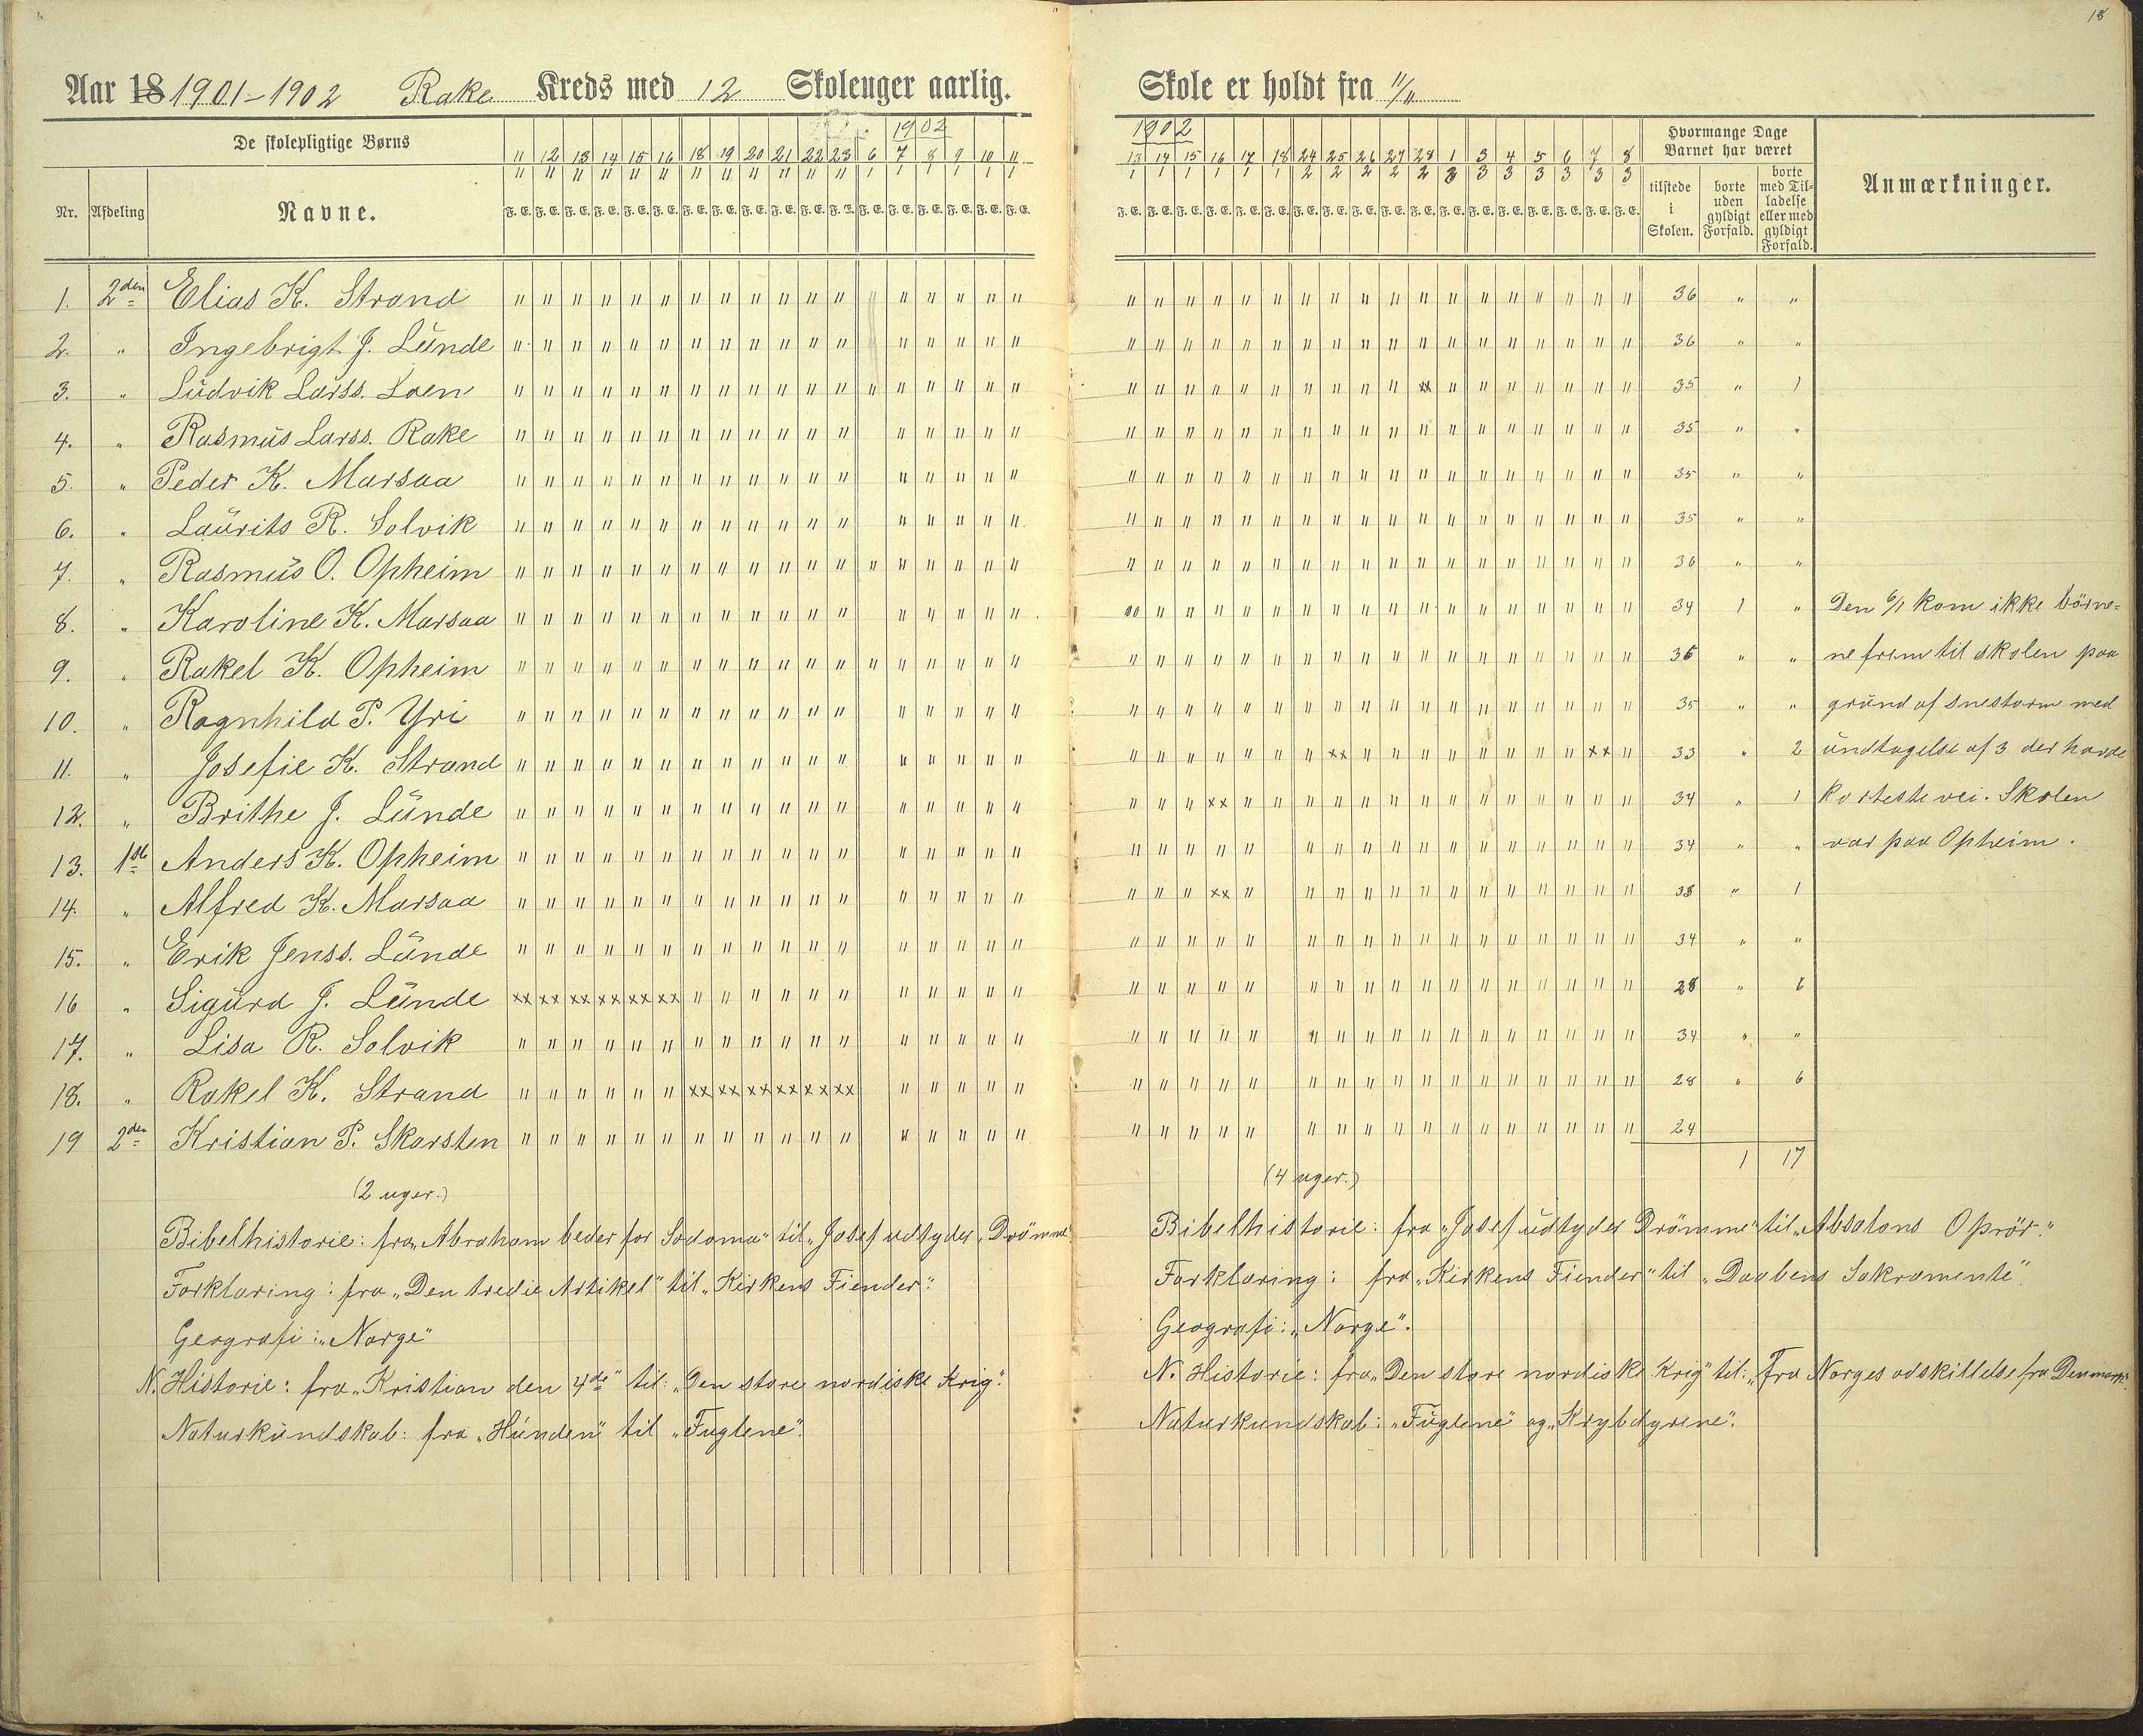 18
Aar 18 1901-1902 Rake Kreds med 12 Skoleuger aarlig. Skole er holdt fra 11/11
De skolepligtige Børns
1902
1902
Hvormange Dage Barnet har været
Anmærkninger.
11 12 13 14 15 16 18 19 20 21 22 23 6 7 8 9 10 11
11 11 11 11 11 11 11 11 11 11 11 11 1 1 1 1 1 1
13 14 15 16 17 18 24 25 26 27 28 1 3 4 5 6 7 8
1 1 1 1 1 1 2 2 2 2 2 3 3 3 3 3 3 3
Nr. Afdeling Navne. F. E. F. E. F. E. F. E. F. E. F. E. F. E. F. E. F. E. F. E. F. E. F. E. F. E. F. E. F. E. F. E. F. E. F. E.
F. E. F. E. F. E. F. E. F. E. F. E. F. E. F. E. F. E. F. E. F. E. F. E. F. E. F. E. F. E. F. E. F. E. F. E.
tilstede i Skolen.
borte uden gyldigt Forfald.
borte med Tilladelse eller med gyldigt Forfald.
1. 2den Elias K. Strand 36 " "
2. " Ingebrigt J. Lunde 36 " "
3. " Ludvik Larss. Loen xx 35 " 1
4. " Rasmus Larss. Rake 35 " "
5. " Peder K. Marsaa 35 " "
6. " Laurits R. Solvik 35 " "
7. " Rasmus O. Opheim 36 " "
8. " Karoline K. Marsaa oo 34 1 " Den 6/1 kom ikke börne-
9. " Rakel K. Opheim 36 " " ne frem til skolen paa
10. " Ragnhild P. Yri 35 " " grund af snestorm med
11. " Josefie K. Strand xx xx 33 " 2 undtagelse af 3 der havde
12. " Brithe J. Lunde xx 34 " 1 korteste vei. Skolen
13. 1ste Anders K. Opheim 34 " " var paa Opheim.
14. " Alfred K. Marsaa xx 33 " 1
15. " Erik Jenss. Lunde 34 " "
16 " Sigurd J. Lunde xx xx xx xx xx xx 28 " 6
17. " Lisa R. Solvik 34 " "
18. " Rakel K. Strand xx xx xx xx xx xx 28 " 6
19 2den Kristian P. Skarsten 24
1 17
(2 uger.)
Bibelhistorie: fra „Abraham beder for Sodoma" til „Josef udtyder Drömme"
Forklaring: fra „Den tredie Artikel" til „Kirkens Fiender".
Geografi: „Norge"
N. Historie: fra „Kristian den 4de" til: „Den store nordiske Krig".
Naturkundskab: fra „Hunden" til „Fuglene".
(4 uger.)
Bibelhistorie: fra „Josef udtyder Drömme" til „Absalons Oprör."
Forklaring: fra „Kirkens Fiender" til „Daabens Sakramente".
Geografi: „Norge".
N. Historie: fra „Den store nordiske Krig" til: „Fra Norges adskillelse fra Denmark".
Naturkundskab: „Fuglene" og „Krybdyrene".